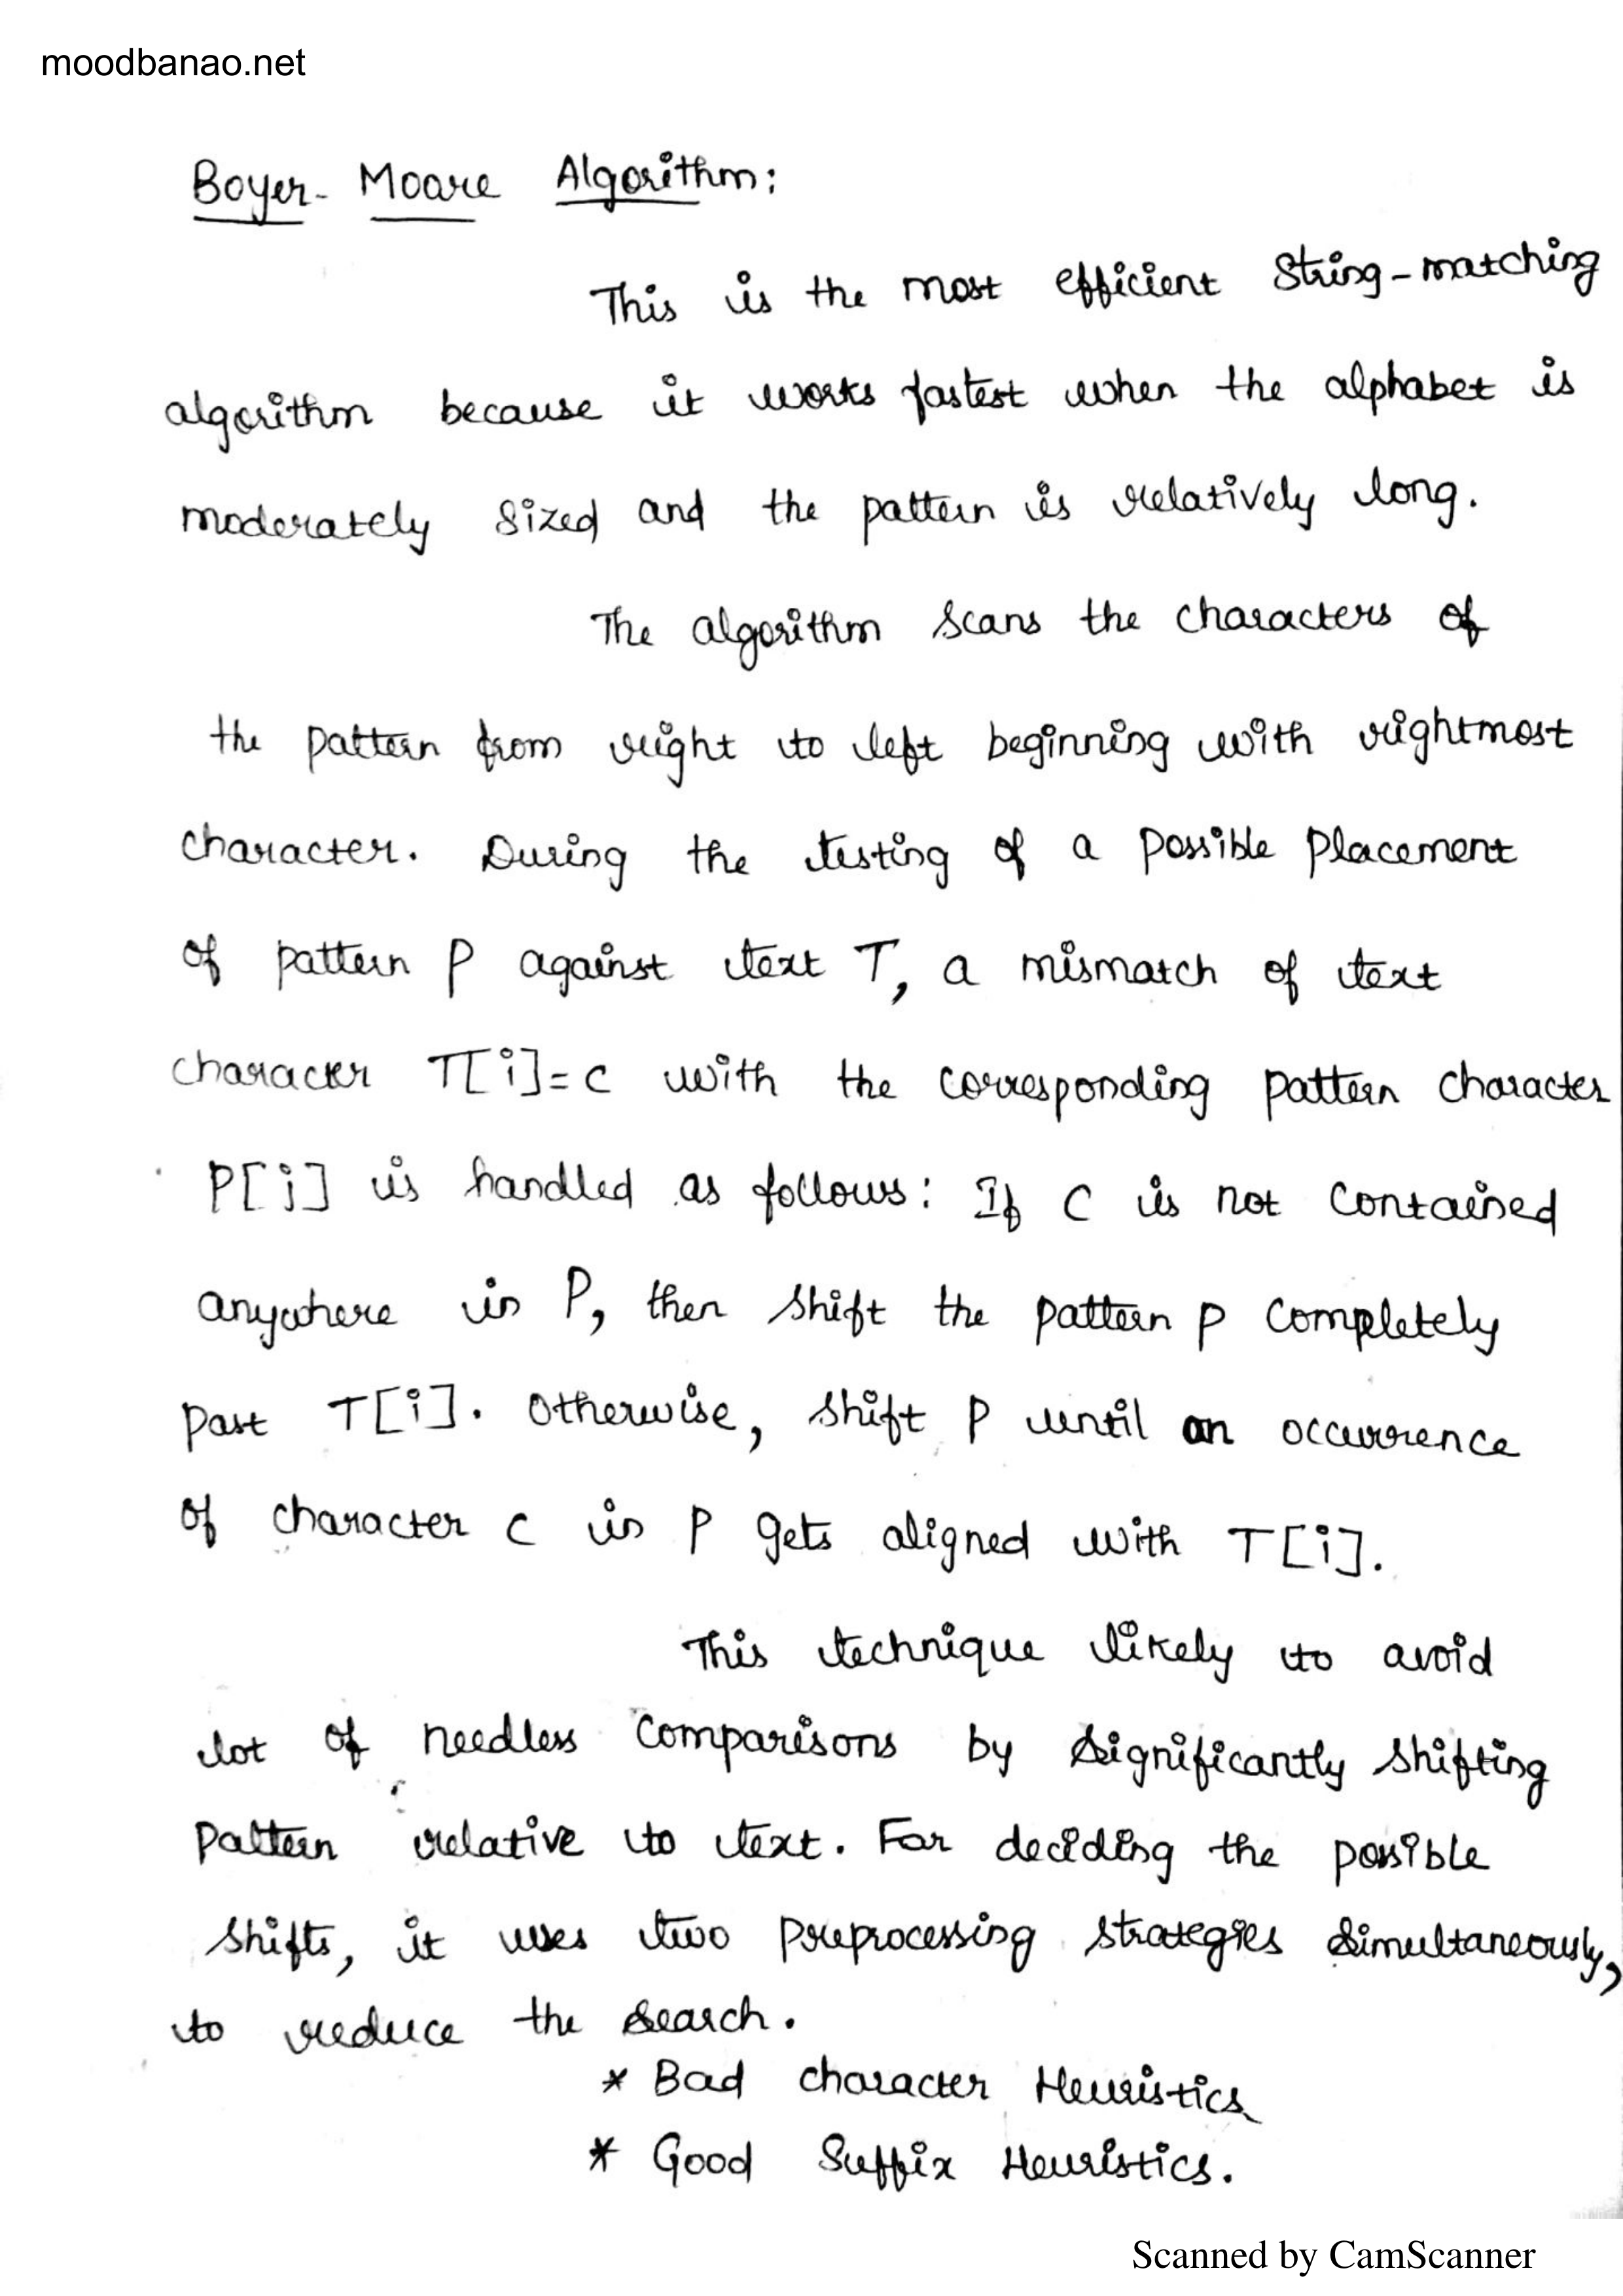 moodbanao.net
Boyer- Moore Algorithm:
This is the most efficient String-matching
algorithm because it works fastest when the alphabet is
moderately sized and the pattern is relatively long.
The algorithm scans the characters of
the pattern from right to left beginning with rightmost
character. During the testing of a possible placement
of pattern P against text T, a mismatch of text
character T[i]=c with the corresponding pattern character
P[j] is handled as follows: If C is not contained
anywhere in P, then shift the pattern P completely
past T[i]. Otherwise, shift P until an occurrence
of character c in P gets aligned with T[i].
This technique likely to avoid
lot of needless comparisons by significantly shifting
pattern relative to text. For deciding the possible
shifts, it uses two preprocessing strategies simultaneously,
to reduce the search.
* Bad character Heuristics
* Good Suffix Heuristics.
Scanned by CamScanner